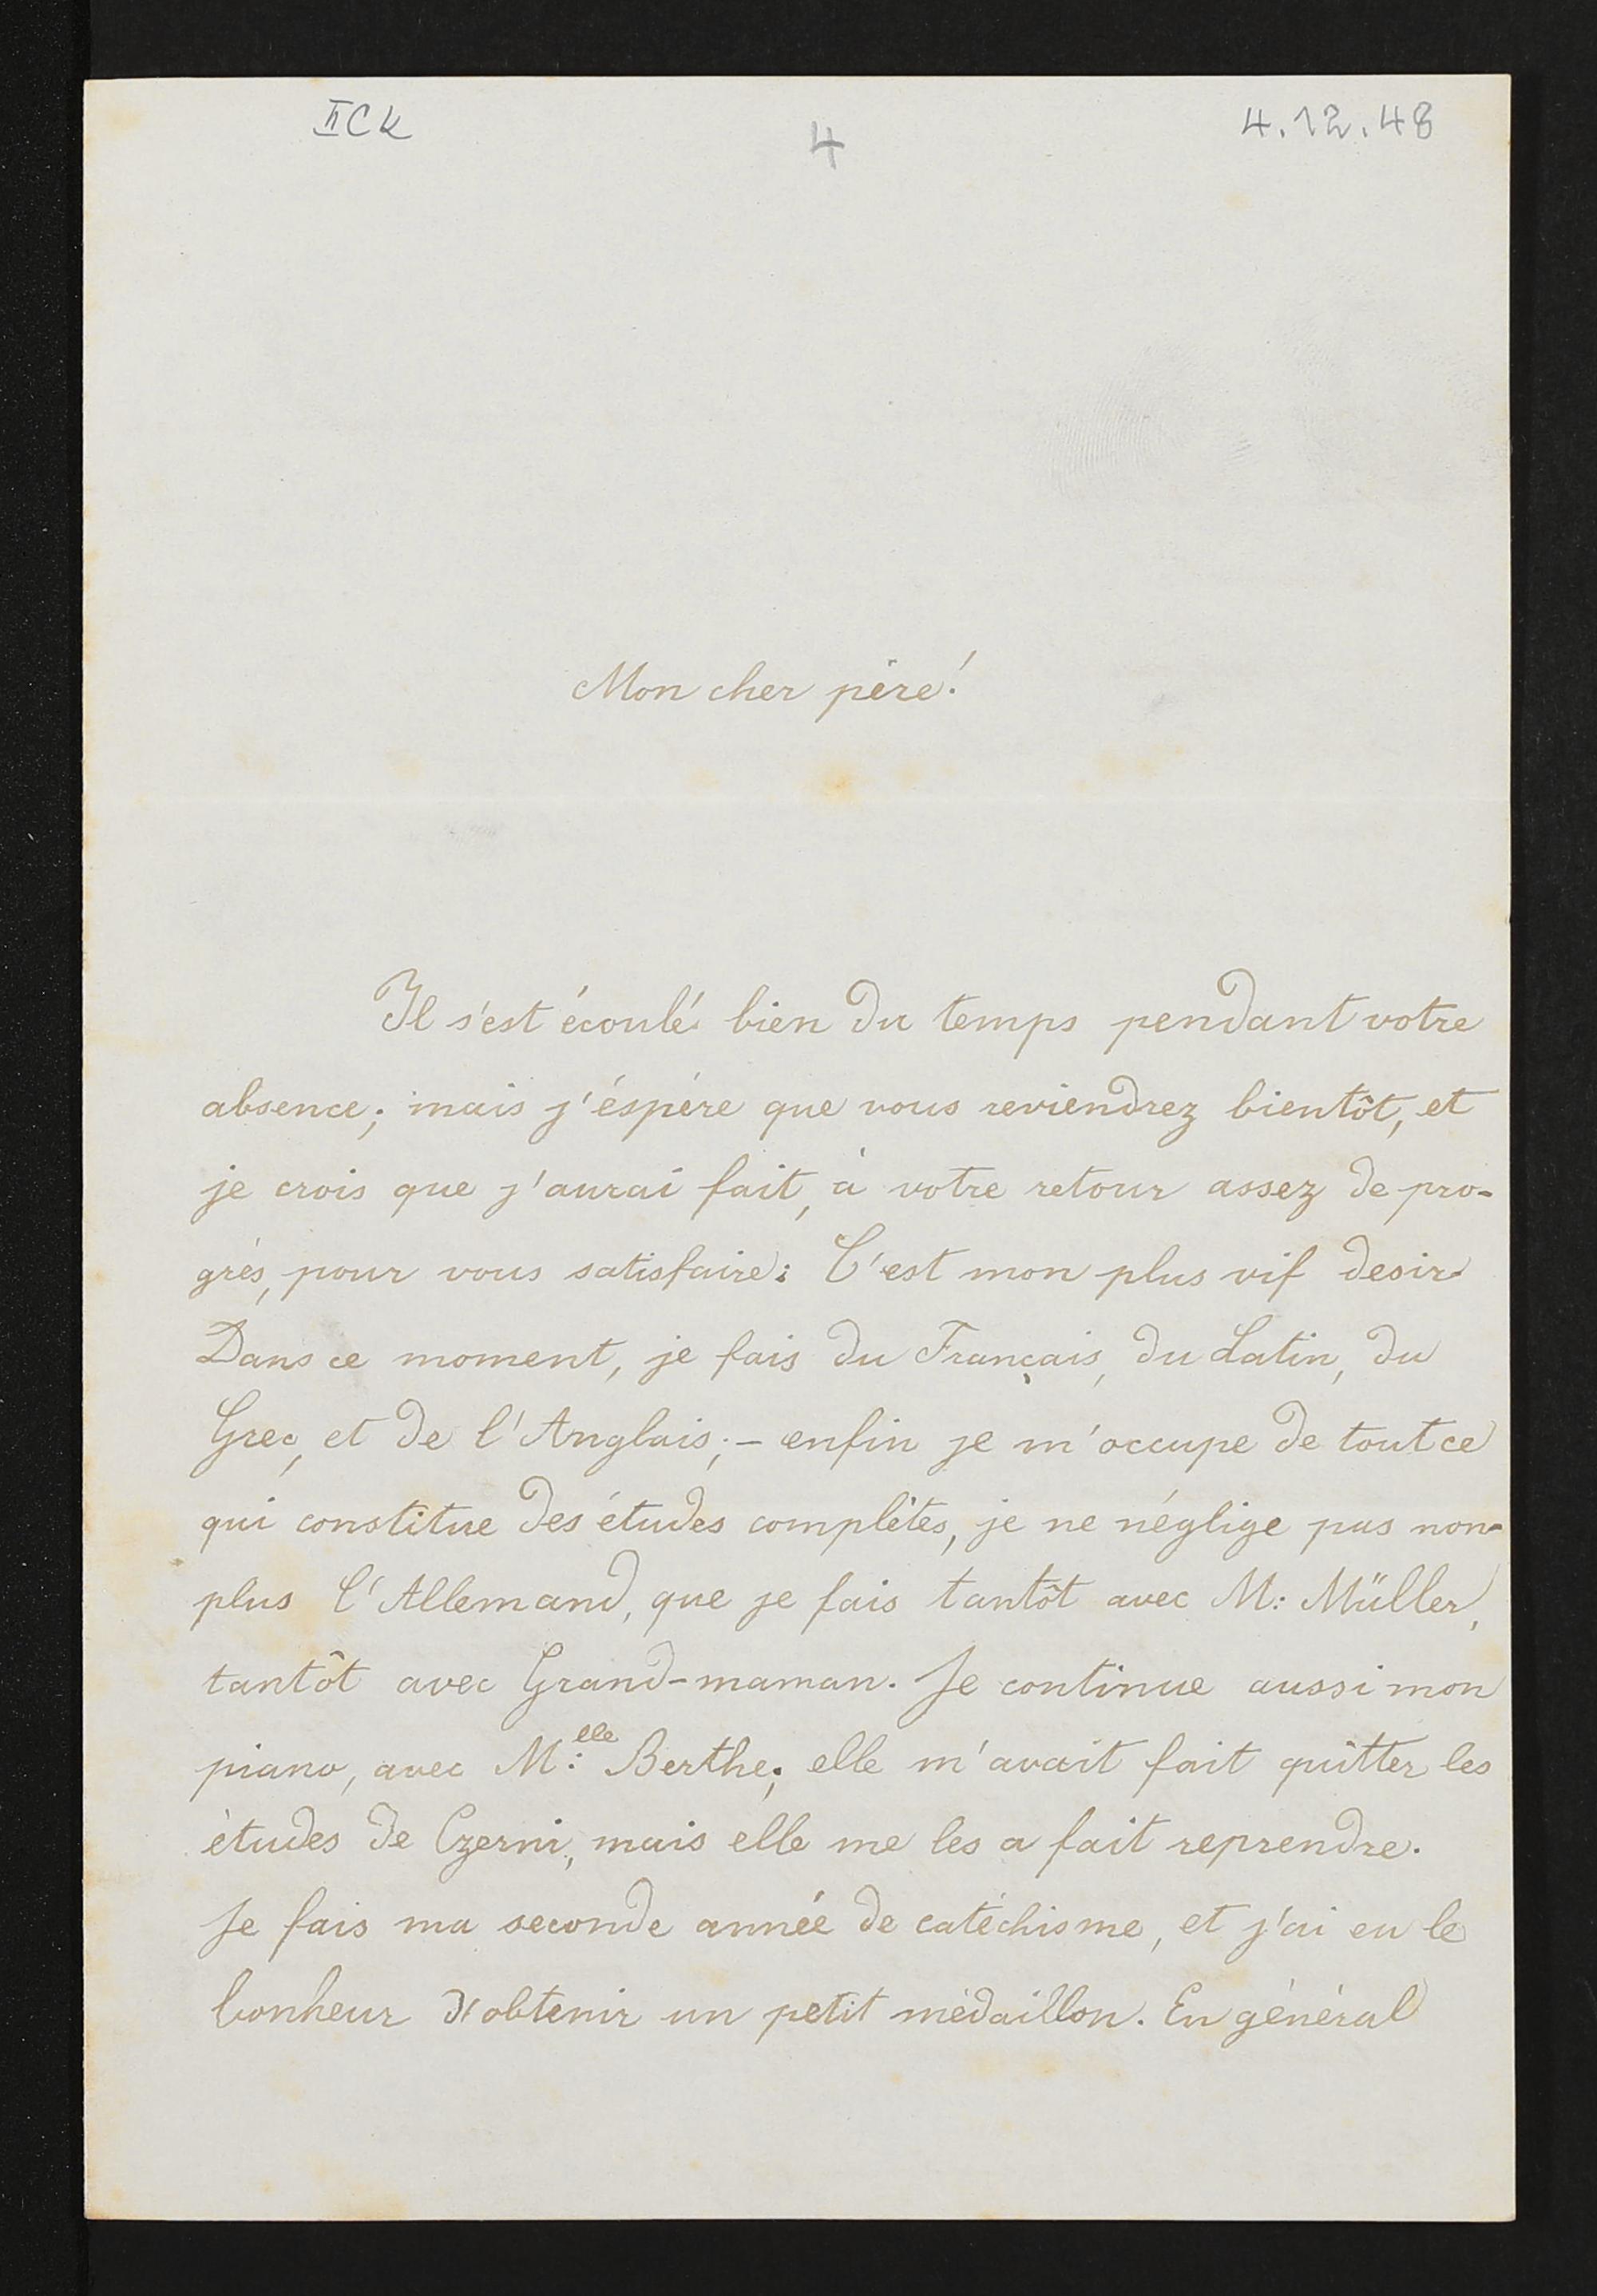 IICK
4
4.12.48
Mon cher père!
Il s'est écoulé bien du temps pendant votre
absence; mais j'éspére que vous reviendrez bientôt, et
je crois que j'aurai fait, à votre retour assez de pro-
grés, pour vous satisfaire: C'est mon plus vif desir
Dans ce moment, je fais du Français, du Latin, du
Grec, et de l'Anglais; - enfin je m'occupe de tout ce
qui constitue des études complêtes, je ne néglige pas non-
plus l'Allemand, que je fais tantôt avec M: Müller,
tantôt avec Grand-maman. Je continue aussi mon
piano, avec M:elle Berthe; elle m'avait fait quitter les
études de Czerni, mais elle me les a fait reprendre.
Je fais ma seconde année de catéchisme, et j'ai eu le
bonheur d'obtenir un petit médaillon. En général